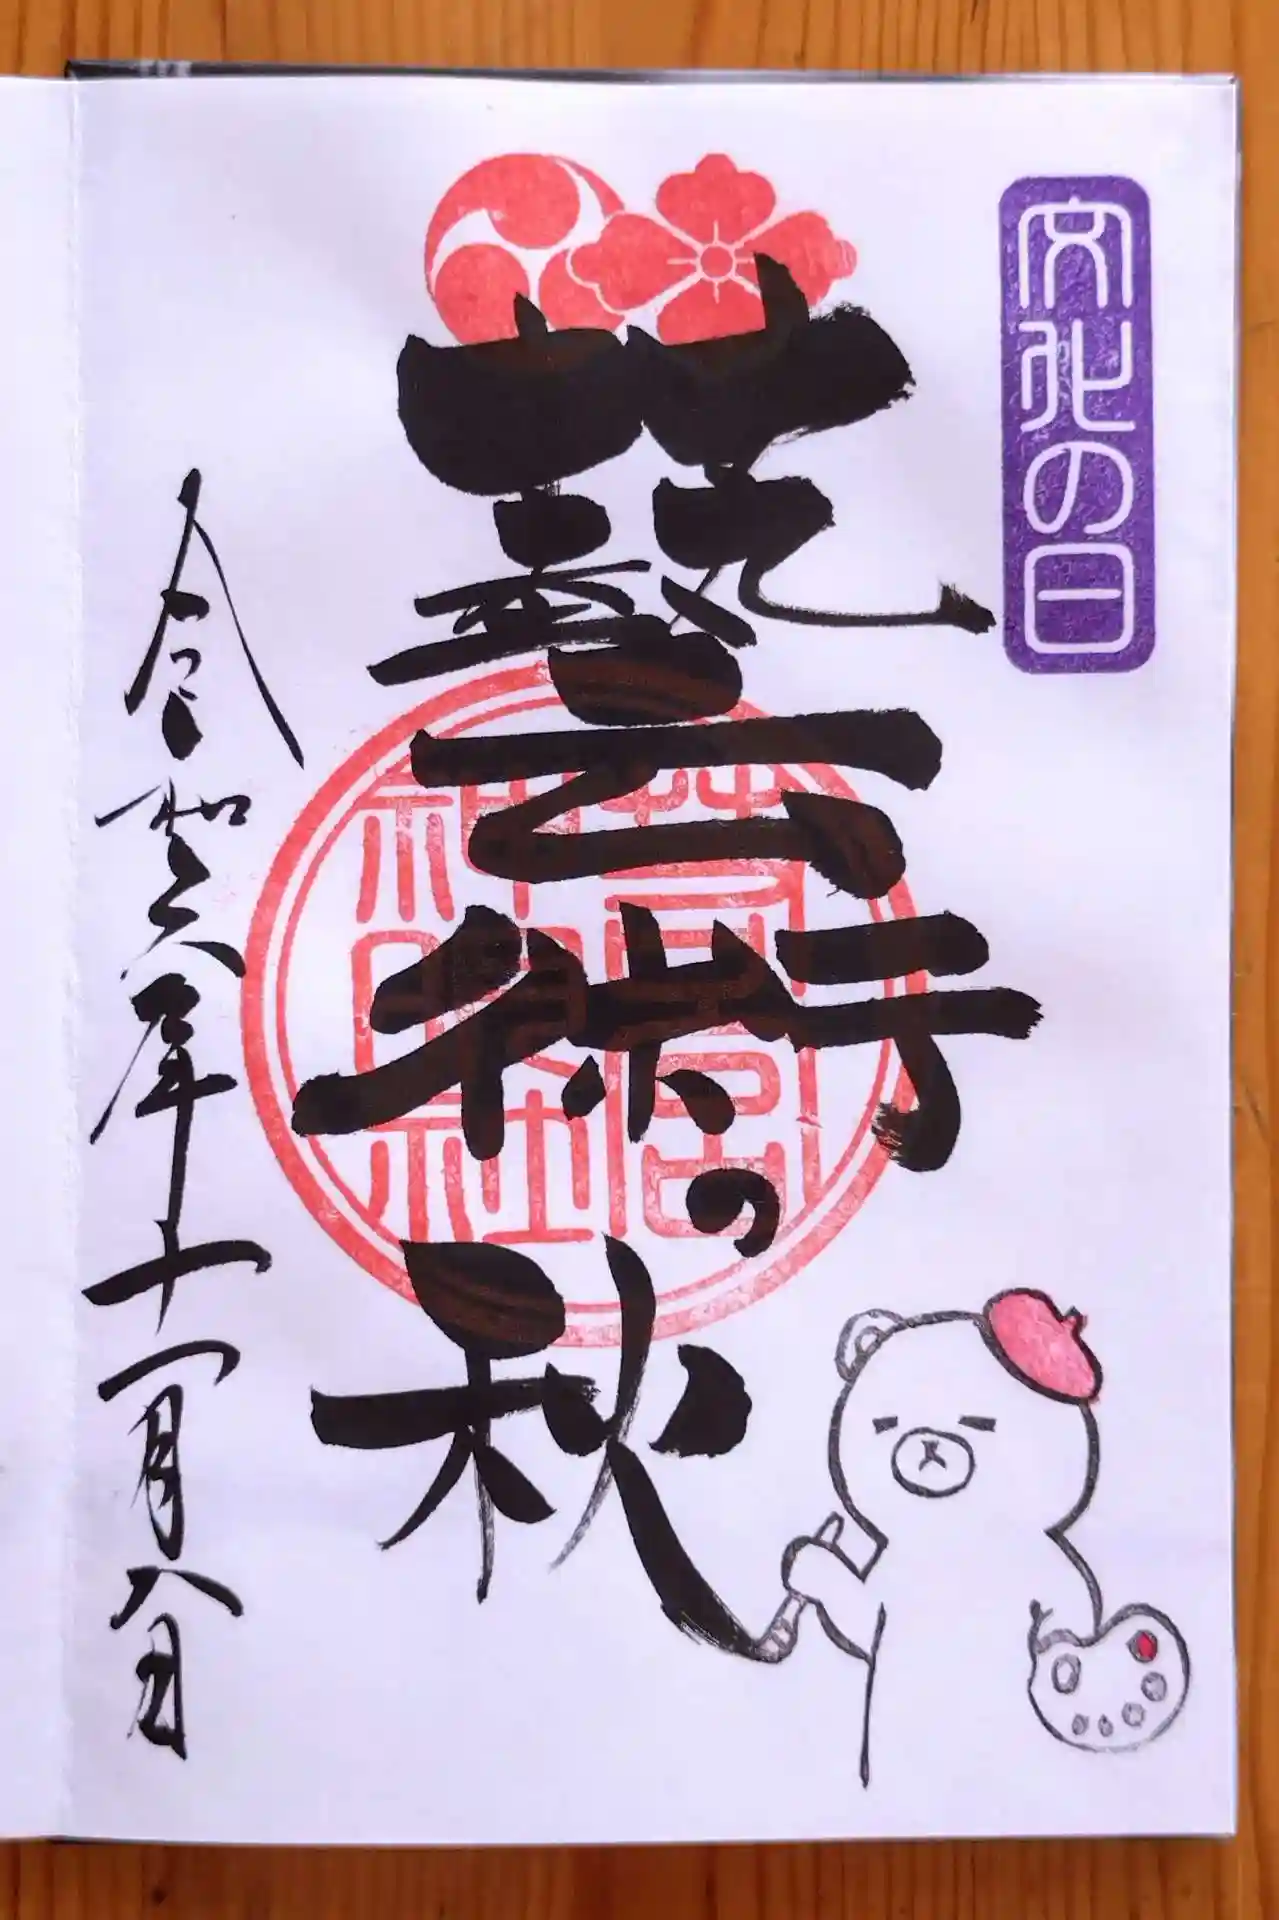 文化の日
藝術の秋
神明社
令和六年十一月八日